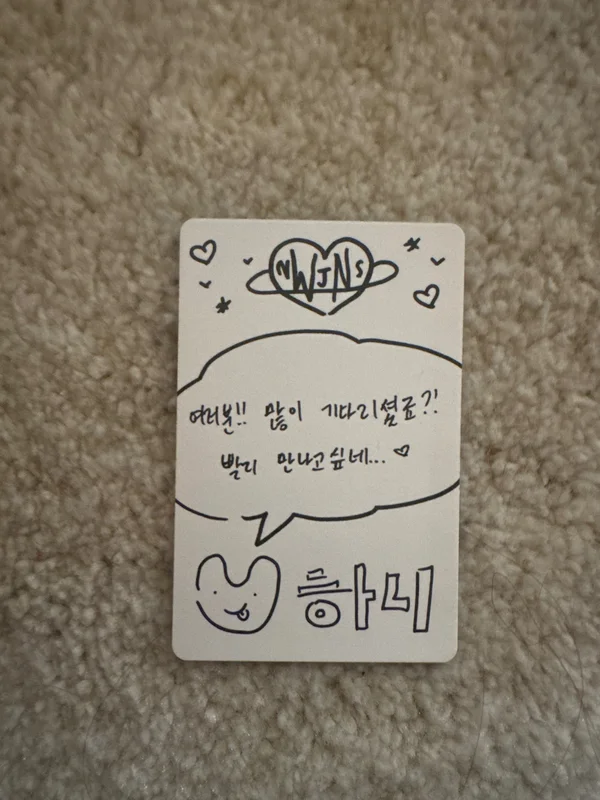 NWJNS
여러분!! 많이 기다리셨죠?!
빨리 만나고싶네...♡
하니